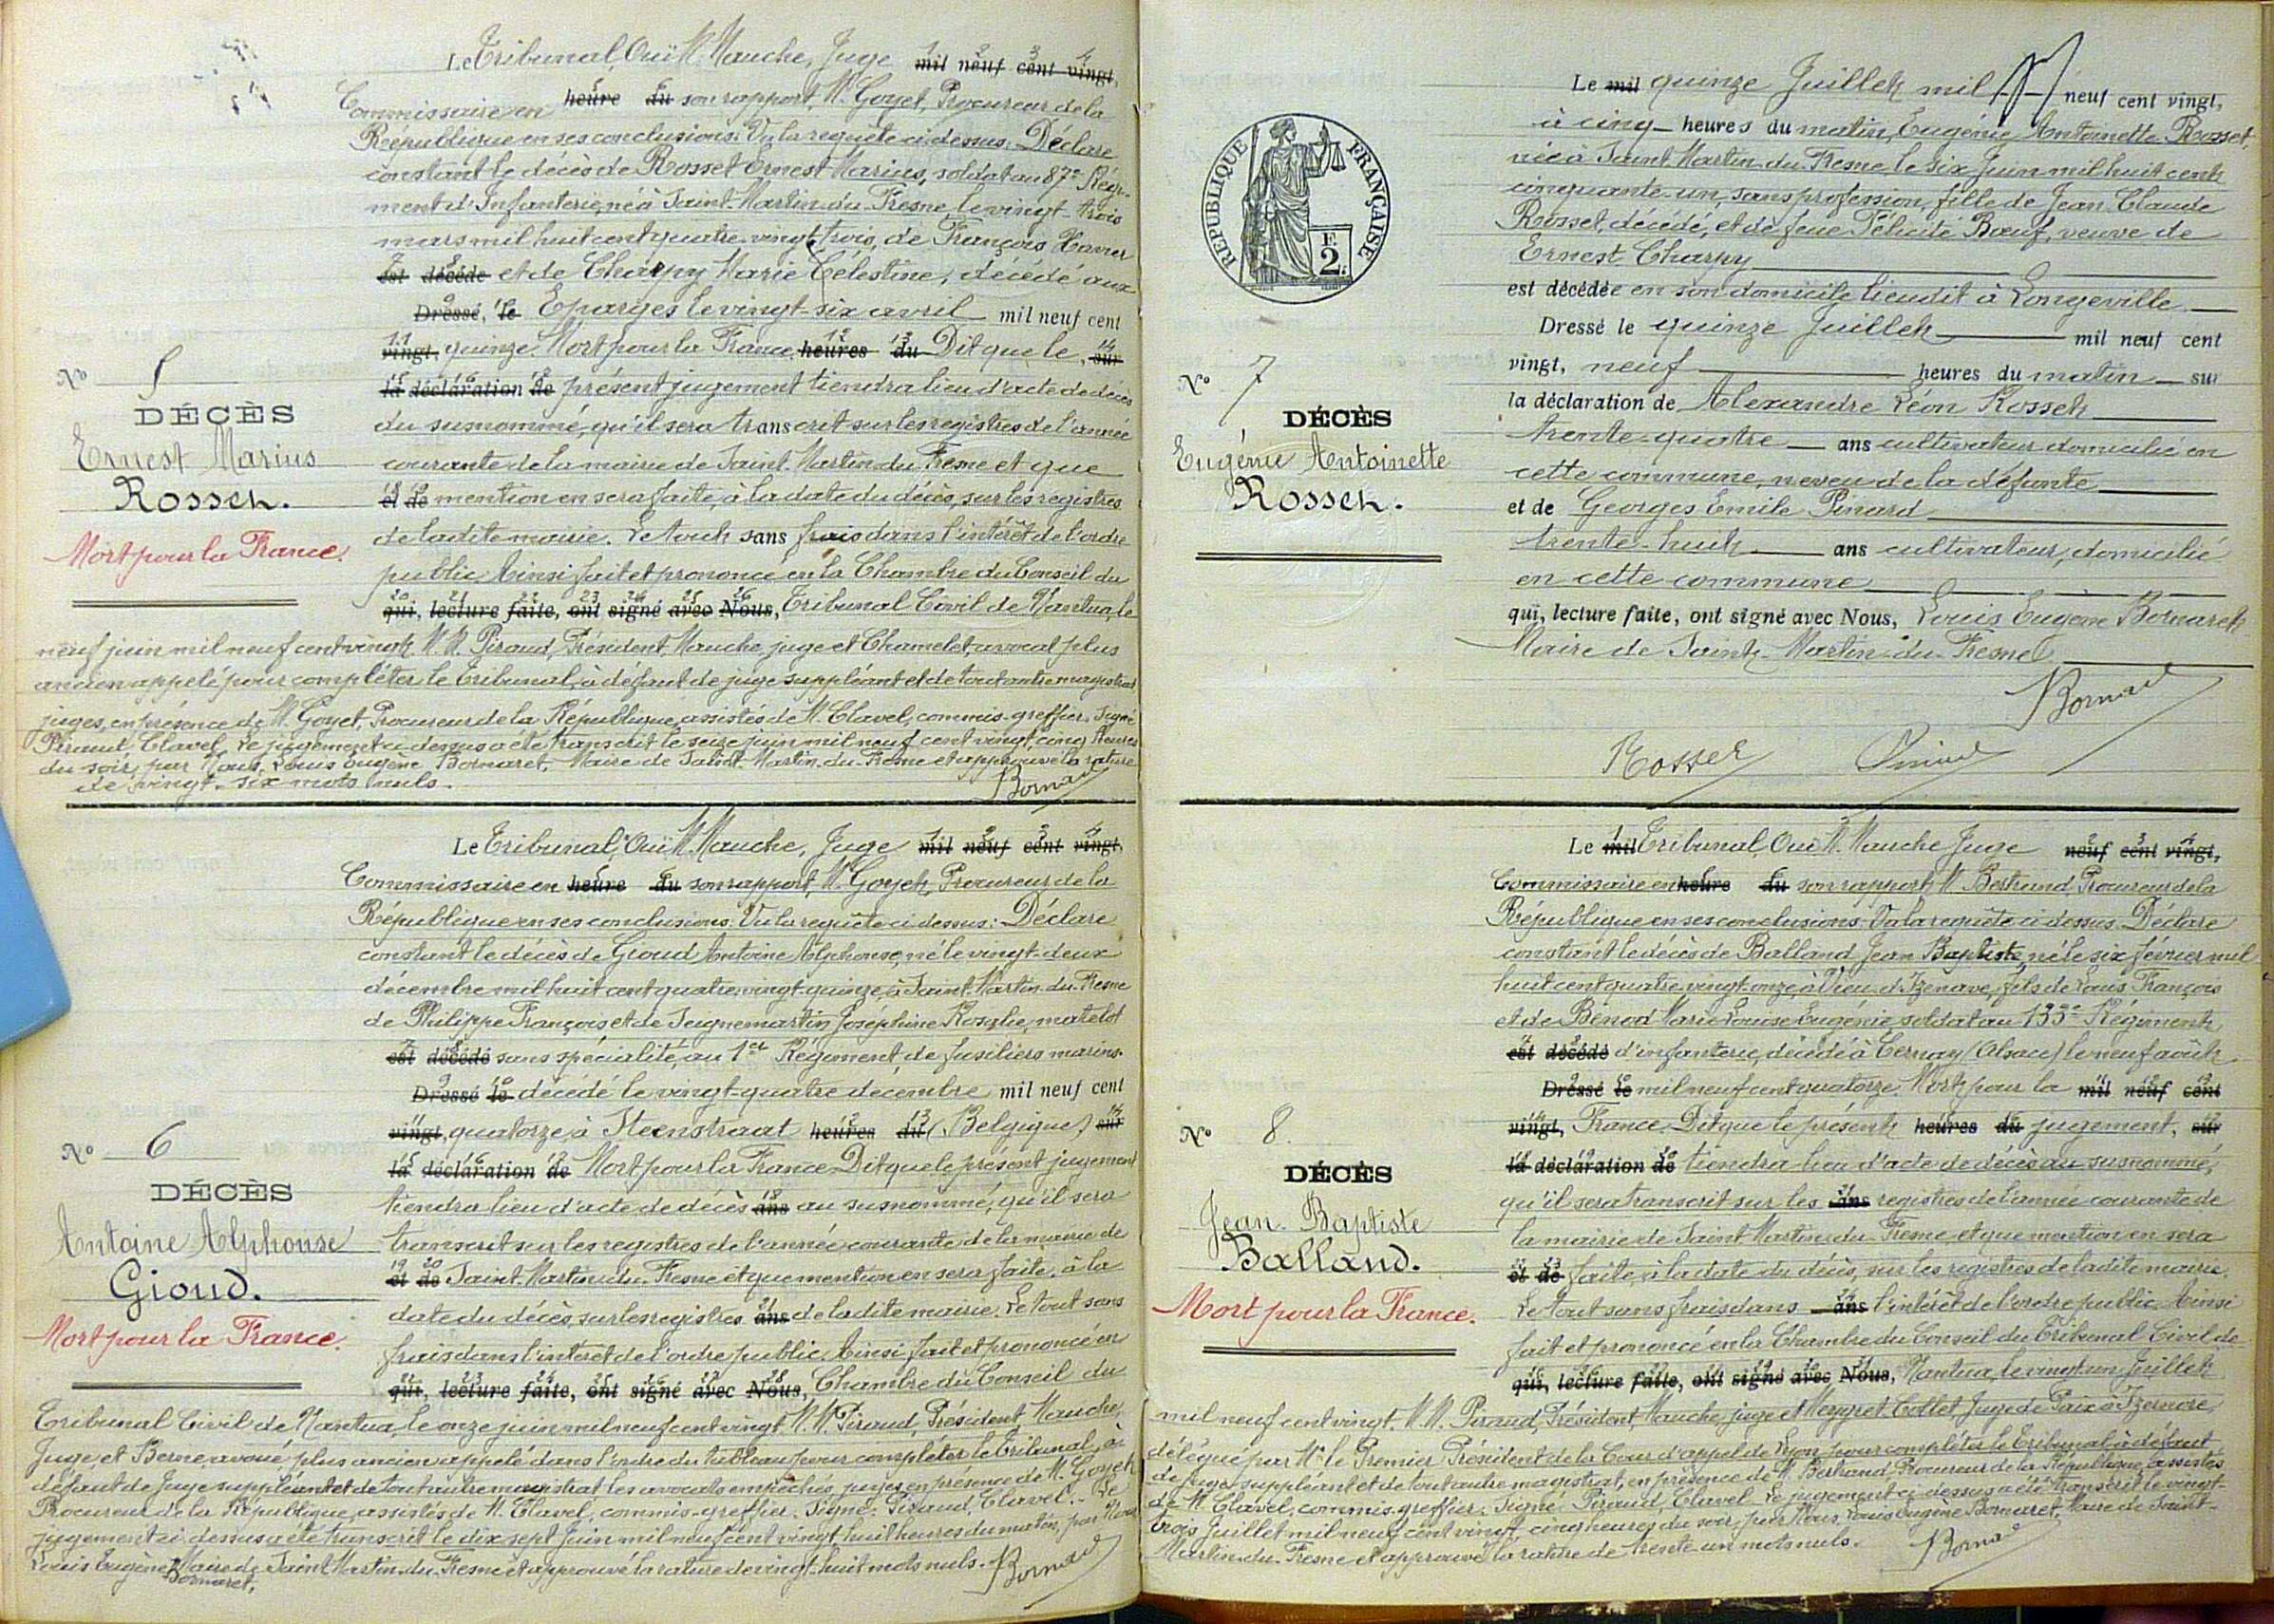 Le Tribunal, Ouï M. Mauche, Juge mil neuf cent vingt,
Commissaire en heure du son rapport, Mr Goyet, Procureur de la
République en ses conclusions. Vu la requête ci dessus: Déclare
constant le décès de Rosset Ernest Marius, soldat au 87e Régi-
ment d'Infanterie, né à Saint-Martin-du-Fresne, le vingt-trois
mars mil huit cent quatre-vingt-trois, de François Xavier
est décédé et de Charpy Marie Célestine, décédé aux
Dressé, le Eparges le vingt-six avril mil neuf cent
vingt, quinze. Mort pour la France. heures du Dit que le, sur
la déclaration de présent jugement tiendra lieu d'acte de décès
du susnommé, qu'il sera transcrit sur les registres de l'année
courante de la mairie de Saint-Martin-du-Fresne et que
et de mention en sera faite, à la date du décès, sur les registres
de ladite mairie. Le tout sans frais dans l'intérêt de l'ordre
public. Ainsi fait et prononcé en la Chambre du Conseil du
qui, lecture faite, ont signé avec Nous, Tribunal Civil de Nantua, le
neuf juin mil neuf cent vingt. M.M. Piraud, Président, Mauche, juge et Chamelet, avocat plus
ancien appelé pour compléter le Tribunal, à défaut de juge suppléant et de tout autre magistrat
juges, en présence de M. Goyet, Procureur de la République, assistés de M. Clavel, commis-greffier. Signé
Piraud, Clavel. Le jugement ci dessus a été transcrit le seize juin mil neuf cent vingt, cinq heures
du soir, par Nous, Louis Eugène Bornaret, Maire de Saint-Martin-du-Fresne et approuvé la rature
de vingt-six mots nuls.
Bornaret
No 5
DÉCÈS
Ernest Marius
Rosset.
Mort pour la France.
Le Tribunal, Ouï M. Mauche, Juge mil neuf cent vingt,
Commissaire en heure du son rapport, Mr Goyet, Procureur de la
République en ses conclusions. Vu la requête ci dessus: Déclare
constant le décès de Gioud Antoine Alphonse, né le vingt-deux
décembre mil huit cent quatre-vingt-quinze, à Saint-Martin-du-Fresne
de Philippe François et de Seignemartin Joséphine Rosalie, matelot
est décédé sans spécialité, au 1er Régiment de fusiliers marins.
Dressé le décédé le vingt-quatre décembre mil neuf cent
vingt, quatorze, à Steenstraat heures du (Belgique) sur
la déclaration de Mort pour la France. Dit que le présent jugement
tiendra lieu d'acte de décès ans au susnommé, qu'il sera
transcrit sur les registres de l'année courante de la mairie de
et de Saint-Martin-du-Fresne et que mention en sera faite, à la
date du décès, sur les registres ans de ladite mairie. Le tout sans
frais dans l'intérêt de l'ordre public. Ainsi fait et prononcé en
qui, lecture faite, ont signé avec Nous, Chambre du Conseil du
Tribunal Civil de Nantua, le onze juin mil neuf cent vingt. M.M. Piraud, Président, Mauche,
Juge, et Berne, avoué, plus ancien appelé dans l'ordre du tableau pour compléter le tribunal, à
défaut de Juge suppléant et de tout autre magistrat, les avocats empêchés, juges, en présence de M. Goyet,
Procureur de la République, assistés de M. Clavel, commis-greffier. Signé: Piraud, Clavel. - Le
jugement ci dessus a été transcrit le dix-sept juin mil neuf cent vingt, huit heures du matin, par Nous
Louis Eugène Bornaret, Maire de Saint-Martin-du-Fresne et approuvé la rature de vingt-huit mots nuls.
Bornaret
No 6
DÉCÈS
Antoine Alphonse
Gioud.
Mort pour la France.
REPUBLIQUE FRANÇAISE
2F.
Le mil quinze Juillet mil neuf cent vingt,
à cinq heures du matin, Eugénie Antoinette Rosset,
née à Saint-Martin-du-Fresne le six Juin mil huit cent
cinquante-un, sans profession, fille de Jean Claude
Rosset, décédé, et de feue Félicité Bœuf, veuve de
Ernest Charpy
est décédée en son domicile lieudit à Longeville
Dressé le quinze Juillet mil neuf cent
vingt, neuf heures du matin sur
la déclaration de Alexandre Léon Rosset
trente-quatre ans cultivateur domicilié en
cette commune, neveu de la défunte
et de Georges Emile Pinard
trente-huit ans cultivateur, domicilié
en cette commune
qui, lecture faite, ont signé avec Nous, Louis Eugène Bornaret
Maire de Saint-Martin-du-Fresne
Bornaret
Rosset
No 7
DÉCÈS
Eugénie Antoinette
Rosset.
Le mil Tribunal, Ouï M. Mauche Juge neuf cent vingt,
Commissaire en heure du son rapport, M. Bertrand, Procureur de la
République en ses conclusions. Vu la requête ci dessus. Déclare
constant le décès de Balland Jean Baptiste, né le six février mil
huit cent quatre-vingt-onze, à Vieu d'Izenave, fils de Louis François
et de Bénod Marie Louise Eugénie, soldat au 133e Régiment
est décédé d'infanterie, décédé à Cernay (Alsace) le neuf août
Dressé le mil neuf cent quatorze. Mort pour la mil neuf cent
vingt, France. Dit que le présent heures du jugement, sur
la déclaration de tiendra lieu d'acte de décès au susnommé,
qu'il sera transcrit sur les ans registres de l'année courante de
la mairie de Saint-Martin-du-Fresne et que mention en sera
et de faite, à la date du décès, sur les registres de ladite mairie.
Le tout sans frais dans ans l'intérêt de l'ordre public. Ainsi
fait et prononcé en la Chambre du Conseil du Tribunal Civil de
qui, lecture faite, ont signé avec Nous, Nantua, le vingt-un Juillet
mil neuf cent vingt. M.M. Piraud, Président, Mauche, juge et Collet Juge de Paix à Izernore,
délégué par Mr le Premier Président de la Cour d'appel de Lyon, pour compléter le Tribunal à défaut
de Juge suppléant et de tout autre magistrat, en présence de M. Bertrand, Procureur de la République, assistés
de M. Clavel, commis-greffier. Signé: Piraud, Clavel. Le jugement ci-dessus a été transcrit le vingt-
trois Juillet mil neuf cent vingt, cinq heures du soir, par Nous, Louis Eugène Bornaret, Maire de Saint-
Martin-du-Fresne et approuvé la rature de trente un mots nuls.
Bornaret
No 8.
DÉCÈS
Jean-Baptiste
Balland.
Mort pour la France.